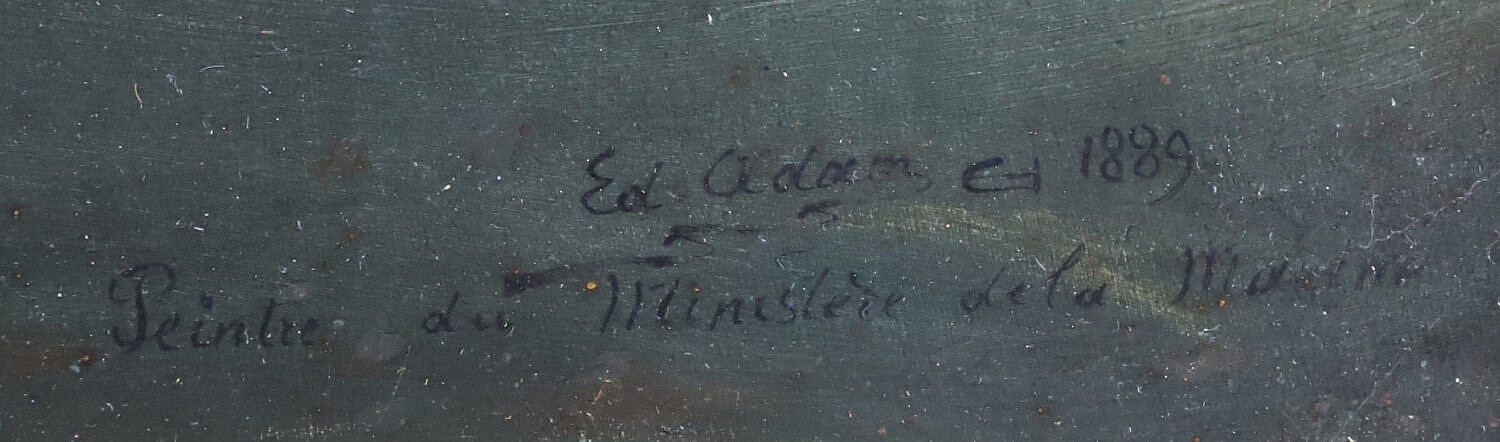 Ed Adam 1889
Peintre du Ministère de la Marine